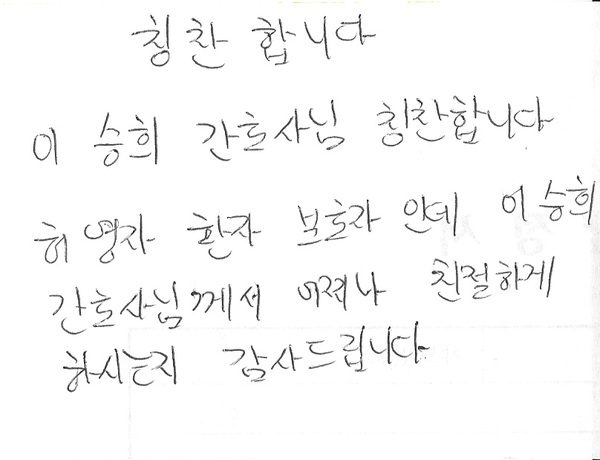 칭찬 합니다
이 승희 간호사님 칭찬합니다
허영자 환자 보호자 인데 이승희
간호사님께서 어찌나 친절하게
하시는지 감사드립니다